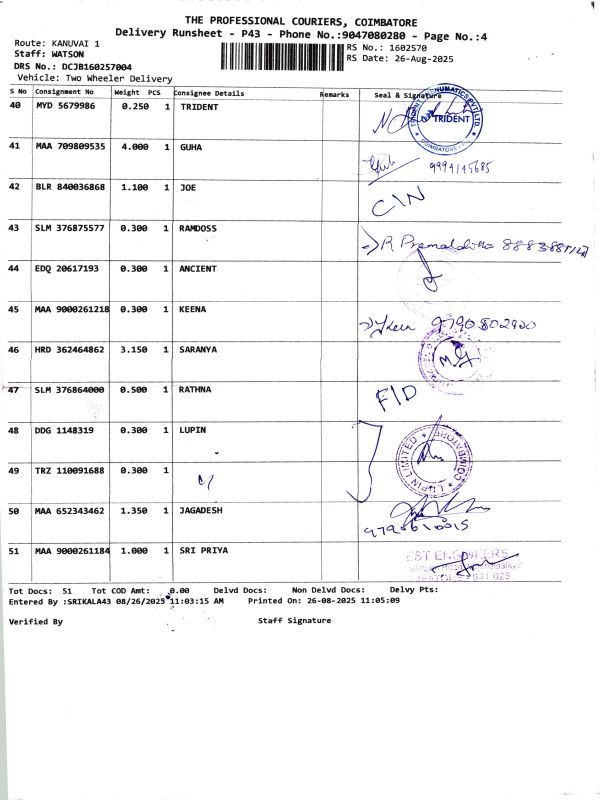 THE PROFESSIONAL COURIERS, COIMBATORE
Delivery Runsheet - P43 - Phone No.:9047080280 - Page No.:4
Route: KANUVAI 1
Staff: WATSON
DRS No.: DCJB160257004
Vehicle: Two Wheeler Delivery
RS No.: 1602570
RS Date: 26-Aug-2025
S No Consignment No Weight PCS Consignee Details Remarks Seal & Signature
40 MYD 5679986 0.250 1 TRIDENT
TRIDENT
41 MAA 709809535 4.000 1 GUHA
9994145685
42 BLR 840036868 1.100 1 JOE
CIN
43 SLM 376875577 0.300 1 RAMDOSS
44 EDQ 20617193 0.300 1 ANCIENT
45 MAA 9000261218 0.300 1 KEENA
9790802900
46 HRD 362464862 3.150 1 SARANYA
47 SLM 376864000 0.500 1 RATHNA
F/D
48 DDG 1148319 0.300 1 LUPIN
LUPIN LIMITED COIMBATORE
49 TRZ 110091688 0.300 1
50 MAA 652343462 1.350 1 JAGADESH
9790610015
51 MAA 9000261184 1.000 1 SRI PRIYA
EST ENGINEERS
Tot Docs: 51 Tot COD Amt: 0.00 Delvd Docs: Non Delvd Docs: Delvy Pts:
Entered By :SRIKALA43 08/26/2025 11:03:15 AM Printed On: 26-08-2025 11:05:09
Verified By Staff Signature